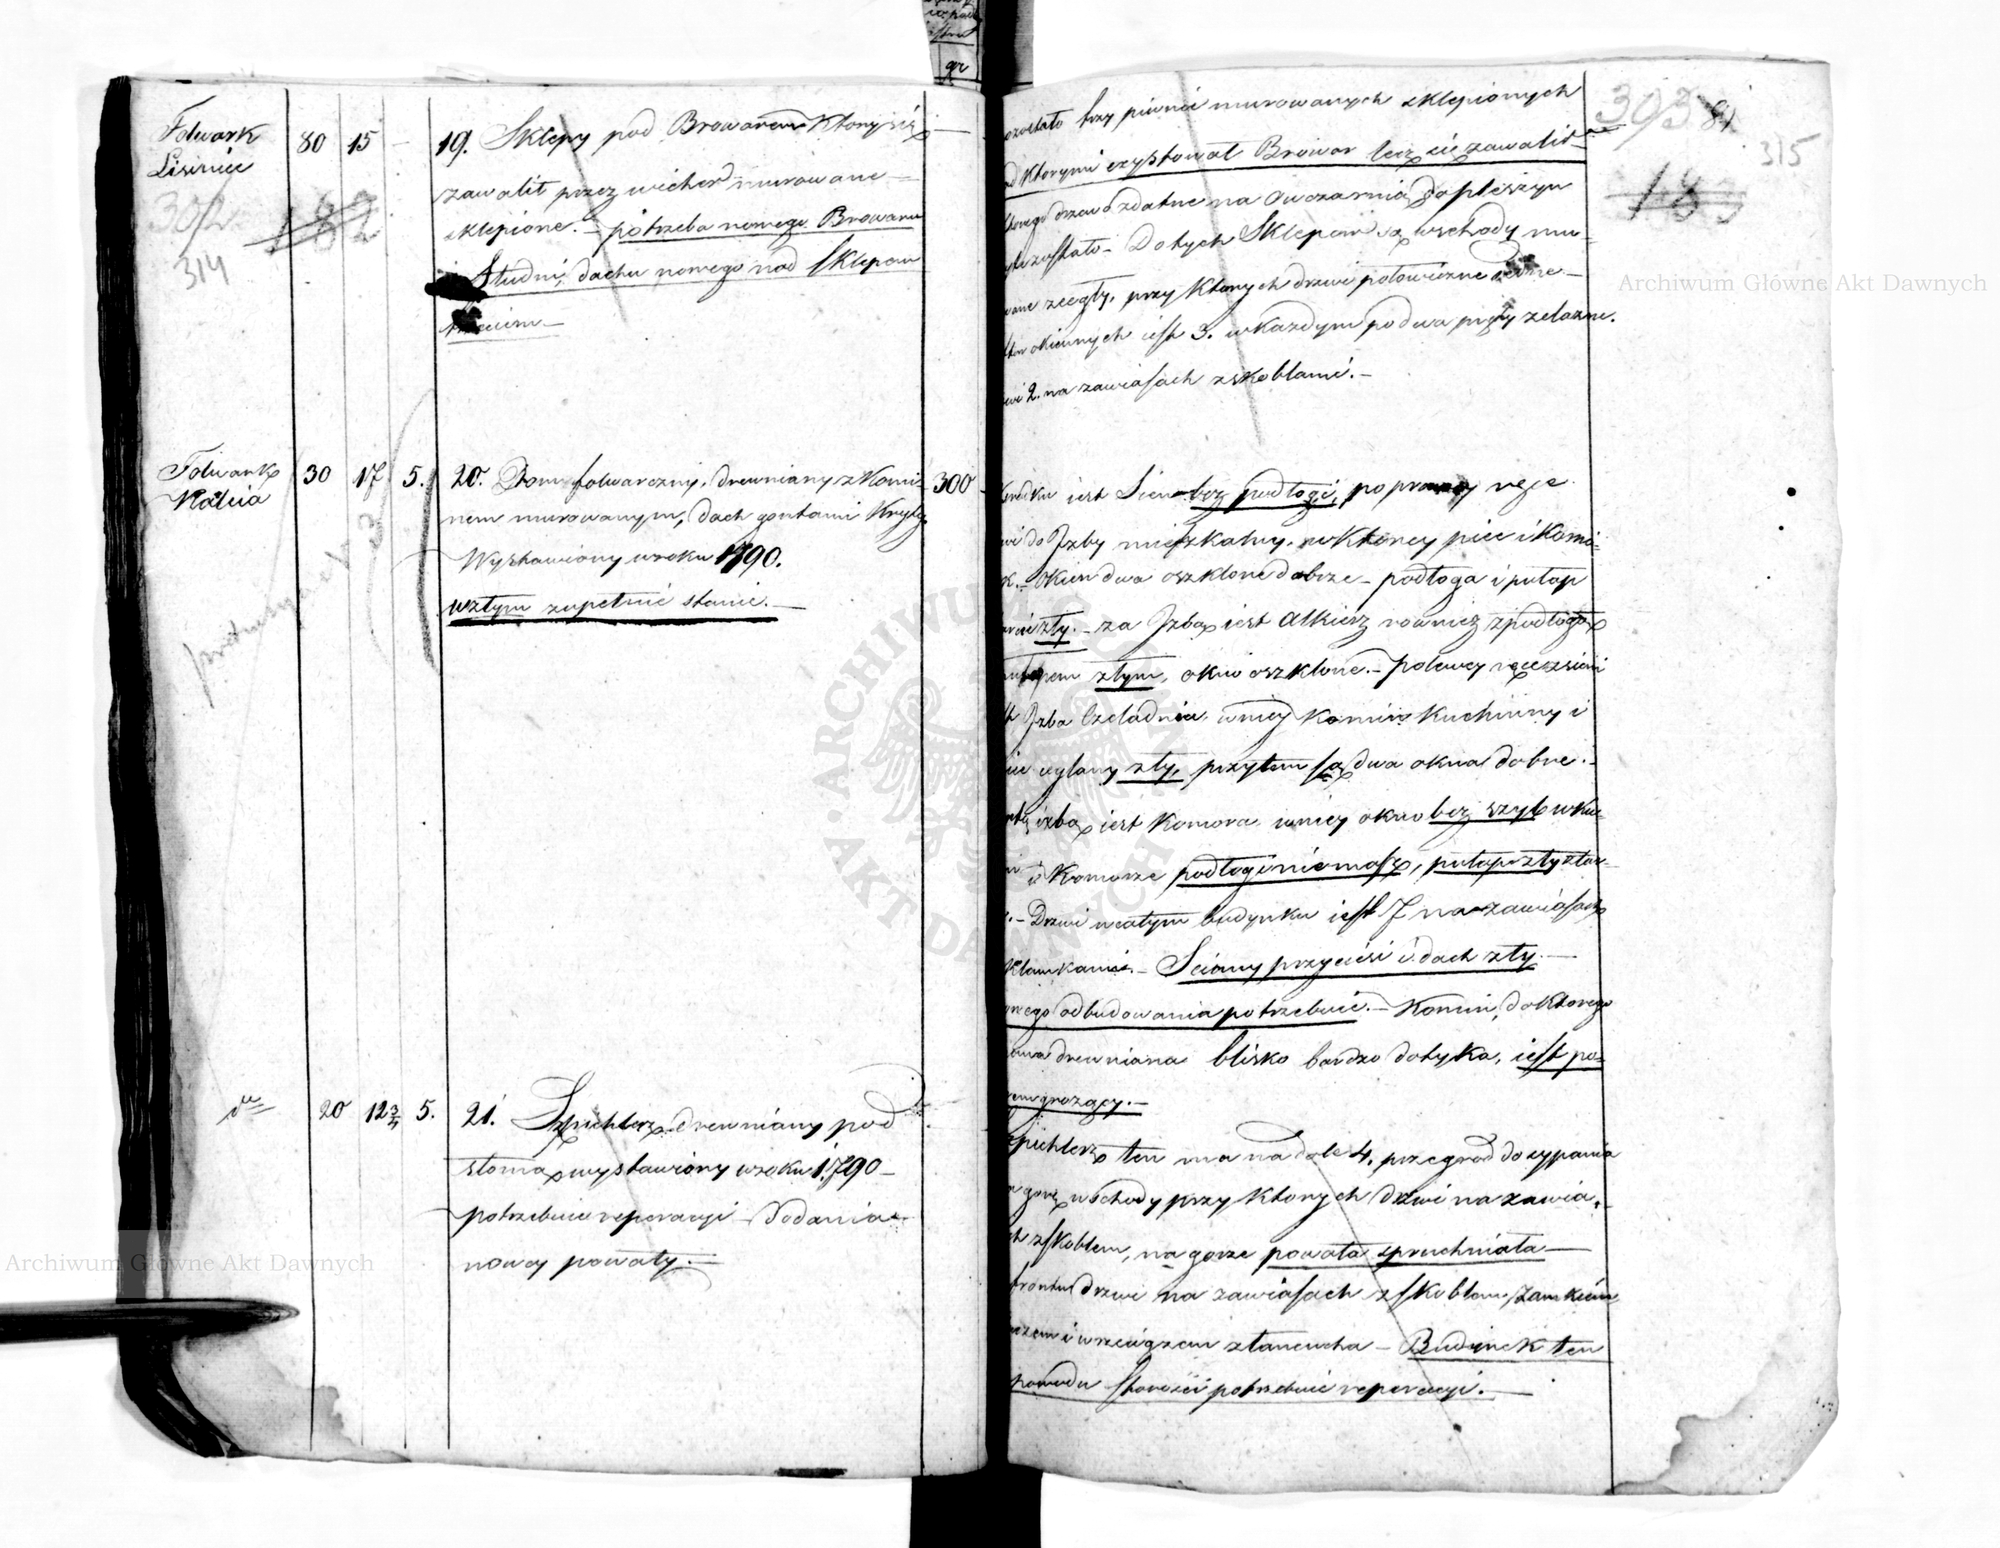 gr
Folwark
Lisiniec
80
15
19. Sklepy pod Browarem Ktory się
zawalił przez wicher murowane
sklepione. – potrzeba nowego Browaru
Studni, dachu nowego nad Sklepem
302
182
314
Folwark
Kalcia
30
17
5.
20. Dom folwarczny, drewniany z Komi-
nem murowanym, dach gontami Kryty
Wystawiony w roku 1790.
w złym zupełnie stanie. –
300
dto
20
12 3/4
5.
21. Szpichlerz drewniany pod
słomą wystawiony w roku 1790 –
potrzebuie reperacyi – Dodania
nowey powały. –
ozostało trzy piwnic murowanych sklepionych
ad Ktorymi exystował Browar lecz się zawalił
ktorego drzewo zdatne na Owczarnią do pleszyn
zostało – Do tych Sklepow są wschody mu-
wane z cegły, przy Ktorych drzwi połowiczne
okiennych iest 3. w Każdym po dwa pręty żelazne.
2. na zawiasach z skoblami. –
303
84
315
183
rodku iest Sien bez podłogi, po prawey ręce
do Jzby mieszkalney, w Ktorey piec i Komi-
k. – Okien dwa oszklone dobrze – podłoga i pułap
zły. – za Jzbą iest Alkierz rownież z podłogą
pułapem złym, okno oszklone. – po lewey ręce z sieni
Jzba Czeladnia, w niey Komin Kuchinny i
ceglany zły, przytem są dwa okna dobre. –
izbą iest Komora w niey okno bez szyb w Kuc-
i Komorze podłogi nie masz, pułap zły star-
– Drzwi w całym budynku iest 7 na zawiasach
Klamkami. – Sciany przyciesi i dach zły. –
nego odbudowania potrzebuie. – Komin, do Ktorego
drewniana blisko bardzo dotyka, iest po-
rem grozący. –
Szpichlerz ten ma na dole 4. przegrod do sypania
gorę wschody przy Ktorych drzwi na zawia-
ch z skoblem, na gorze powała spruchniała –
frontu drzwi na zawiasach z skoblem, zamkiem
i wrzeciązem z łancucha – Budinek ten
powodu starości potrzebuie reperacyi. –
Archiwum Główne Akt Dawnych
Archiwum Główne Akt Dawnych
ARCHIWUM GŁÓWNE AKT DAWNYCH